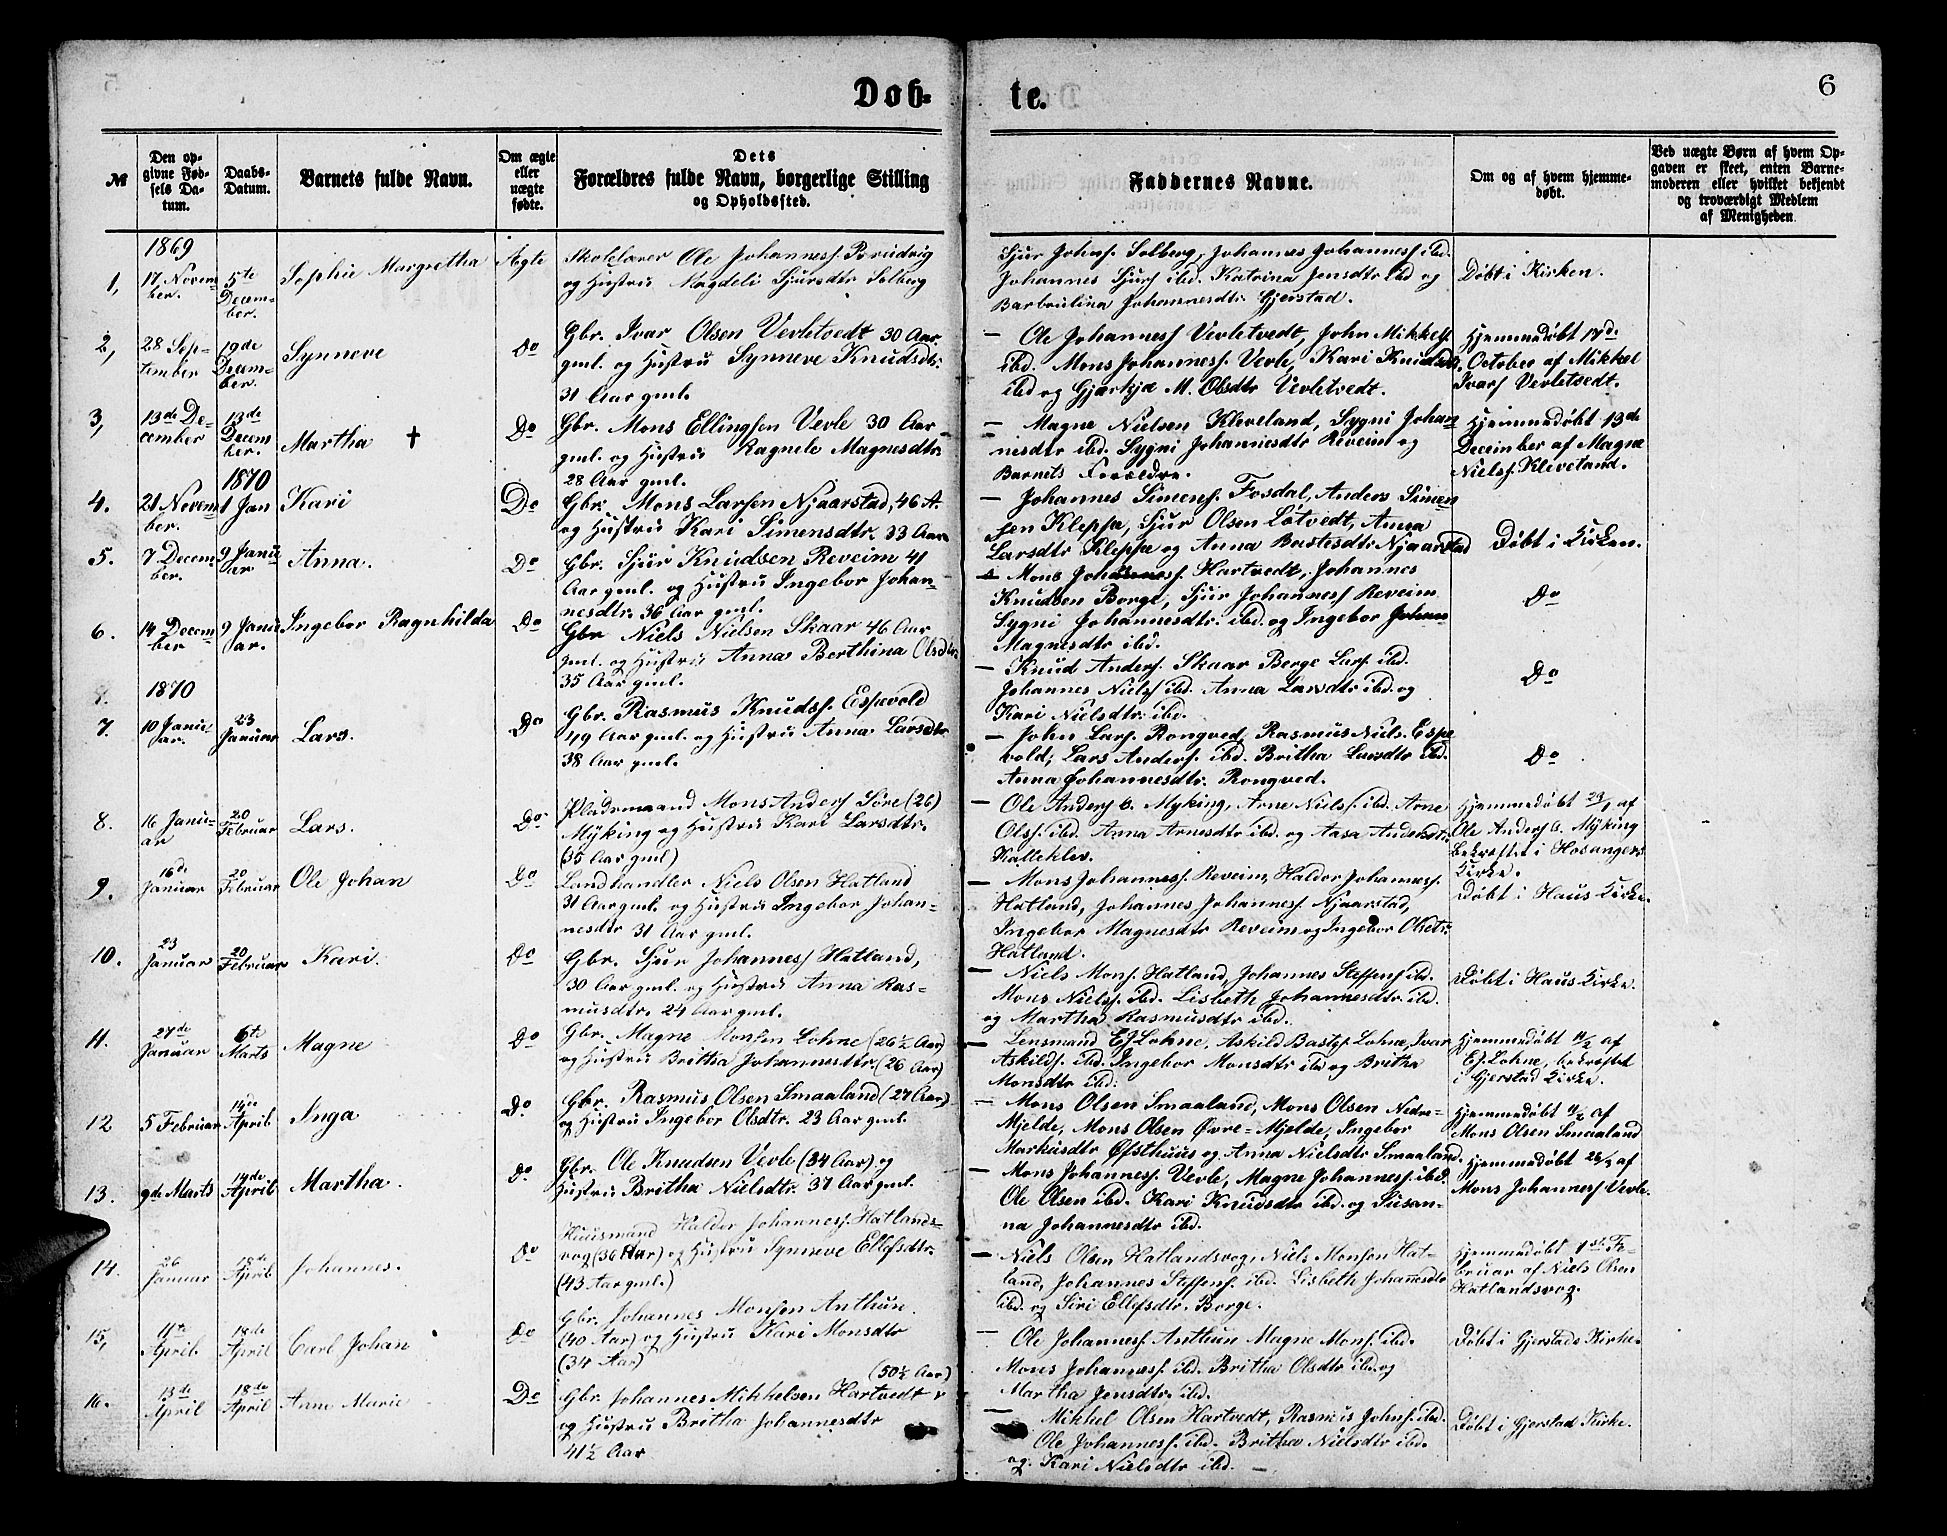 Døb-
te.
6
№
Den op-
givne Fød-
sels Da-
tum.
Daabs-
Datum.
Barnets fulde Navn.
Om ægte
eller
uægte
fødte.
Dets
Forældres fulde Navn, borgerlige Stilling
og Opholdssted.
Faddernes Navne.
Om og af hvem hjemme-
døbt.
Ved uægte Børn af hvem Op-
gaven er skeet, enten Barne-
moderen eller hvilket bekjendt
og troværdigt Medlem
af Menigheden.
1869
1,
17 Novem-
ber.
5te
Decem-
ber.
Sophie Margretha
Ægte
Skolelærer Ole Johannes.
og Hustru Magdeli Sjursdtr Solberg
Sjur Johns. Solberg, Johannes Johanness ibd.
Johannes Sjurs ibd. Katrina Jensdtr ibd og
Barbrulina Johannesdtr. Gjerstad.
Døbt i Kirken.
2,
28 Sep-
tember
19de
Decem-
ber.
Synneve
Do
Gbr. Ivar Olsen Vevletvedt 30 Aar
gml. og Hustru Synneve Knudsdtr.
31 Aar gml.
— Ole Johanness Vevletvedt, John Mikkels.
ibd. Mons Johanness. Vevle, Kari Knudsdtr
ibd og Gjertrjæ M. Olsdtr Vevletvedt.
Hjemmedøbt 17de
October af Mikkel
Ivars Vevletvedt.
3,
13de De-
cember
13de
Decem-
ber.
Martha †
Do
Gbr. Mons Ellingsen Vevle 30 Aar
gml. og Hustru Ragnele Magnesdtr.
28 Aar gml.
— Magne Nielsen Kleveland, Sygni Johan-
nesdtr ibd. Sygni Johannesdtr Reveim og
Barnets Forældre.
Hjemmedøbt 13de
December af Magne
Niels. Kleveland.
1870
4.
21 Novem-
ber.
1 Jan
Kari
Do
Gbr. Mons Larsen Njaarstad, 46 A.
og Hustru Kari Simensdtr. 33 Aar
— Johannes Simens. Fosdal, Anders Simen-
sen Kleppe, Sjur Olsen Løtvedt, Anna
Larsdtr Kleppe og Anna Bastesdtr Njaarstad
Døbt i Kirken.
5.
7 Decem-
ber.
9 Janu-
ar
Anna.
Do
Gbr. Sjur Knudsen Reveim 41
Aar gml. og Hustru Ingebor Johan-
nesdtr. 36 Aar gml.
— Mons Johanness. Hartvedt, Johannes
Knudsen Borge, Sjur Johanness Reveim
Sygni Johannesdtr. ibd. og Ingebor Johan
Magnesdtr ibd.
Do
6.
14 Decem-
ber
9 Janu-
ar.
Ingebor Ragnhilda
Do
Gbr Niels Nielsen Skaar 46 Aar
gml. og Hustru Anna Berthina Olsdtr
35 Aar gml.
— Knud Anders. Skaar Borge Lars ibd.
Johannes Niels ibd. Anna Larsdtr ibd. og
Kari Nielsdtr. ibd.
Do
1870
7.
10 Janu-
ar.
23
Januar
Lars.
Do
Gbr. Rasmus Knuds. Espevold
49 Aar gml. og Hustru Anna Larsdtr
38 Aar gml.
— John Lars. Rongved, Rasmus Niels. Espe
vold, Lars Anders. ibd. Britha Larsdtr ibd.
Anna Johannesdtr. Rongved.
Do
8.
16 Janu-
ar
20
Februar
Lars.
Do
Pladsmand Mons Anders Søre (26)
Myking og Hustru Kari Larsdtr.
(35 Aar gml)
— Ole Anders S. Myking, Arne Niels. ibd. Arne
Ols. ibd. Anna Arnesdtr ibd. og Aasa Andersdtr.
Kalleklev.
Hjemmedøbt 23/1 af
Ole Anders S. Myking
bekræftet i Hosangers
Kirke.
9.
16de
Januar
20
Februar
Ole Johan
Do
Landhandler Niels Olsen Hatland
31 Aar gml. og Hustru Ingebor Johan-
nesdtr 31 Aar gml.
— Mons Johanness. Reveim, Haldor Johanness.
Hatland, Johannes Johanness. Njaarstad,
Ingebor Magnesdtr Reveim og Ingebor Olsdtr.
Hatland.
Døbt i Haus Kirke.
10.
23
Januar
20
Februar
Kari
Do
Gbr. Sjur Johanness Hatland,
30 Aar gml. og Hustru Anna Ras-
musdtr. 24 Aar gml.
— Niels Mons. Hatland, Johannes Steffens ibd.
Mons Niels. ibd. Lisbeth Johannesdtr ibd.
og Martha Rasmusdtr ibd.
Døbt i Haus Kirke.
11.
27de
Januar
6te
Marts
Magne
Do
Gbr. Magne Monsen Lohne (26 ½ Aar)
og Hustru Britha Johannesdtr. (26 Aar)
— Lensmand Es Lohne, Askild Bastes Lohne, Ivar
Askilds. ibd. Ingebor Monsdtr ibd og Britha
Monsdtr ibd.
Hjemmedøbt af
Es. Lohne, bekræftet
i Gjerstad Kirke.
12
5 Februar
April
Inga
Do
Gbr. Rasmus Olsen Smaaland (27 Aar)
og Hustru Ingebor Olsdtr. 23 Aar gml.
— Mons Olsen Smaaland, Mons Olsen Nedre-
Mjelde, Mons Olsen Øvre-Mjelde, Ingebor
Markusdtr Øfsthuus og Anna Nielsdtr Smaaland.
Hjemmedøbt af
Mons Olsen Smaaland
13.
9de Marts
14de
April
Martha.
Do
Gbr. Ole Knudsen Vevle (34 Aar) og
Hustru Britha Nielsdtr. 37 Aar gml.
— Mons Johanness. Vevle, Magne Johanness. ibd.
Ole Olsen ibd. Kari Knudsdtr ibd. og Susan-
na Johannesdtr ibd.
Hjemmedøbt af
Mons Johanness Vevle.
14.
26
Januar
18de
April
Johannes.
Do
Huusmand Haldor Johanness. Hatlands-
vog (36 Aar) og Hustru Synneve Ellefsdtr.
(43 Aar gml.)
— Niels Olsen Hatlandsvog, Niels Monsen Hat-
land, Johannes Steffens. ibd. Lisbeth Johannesdtr
ibd. og Siri Ellefsdtr. Borge.
Hjemmedøbt 1ste Fe-
bruar af Niels Olsen
Hatlandsvog.
15,
11te
April
18de
April
Carl Johan
Do
Gbr. Johannes Monsen Anthun.
(40 Aar) og Hustru Kari Monsdtr
(34 Aar)
— Ole Johanness. Anthun Magne Mons. ibd.
Mons Johanness. ibd. Britha Olsdtr ibd. og
Martha Jensdtr. ibd.
Døbt i Gjerstads Kirke.
16.
13de
April
18de
April
Anne Marie
Do
(50 ½ Aar)
Gbr. Johannes Mikkelsen Hartvedt
og Hustru Britha Johannesdtr
41 ½ Aar
— Mikkel Olsen Hartvedt, Rasmus Johns. ibd.
Ole Johanness. ibd. Britha Nielsdtr ibd.
og. Kari Nielsdtr ibd. —
Døbt i Gjerstad Kirke.